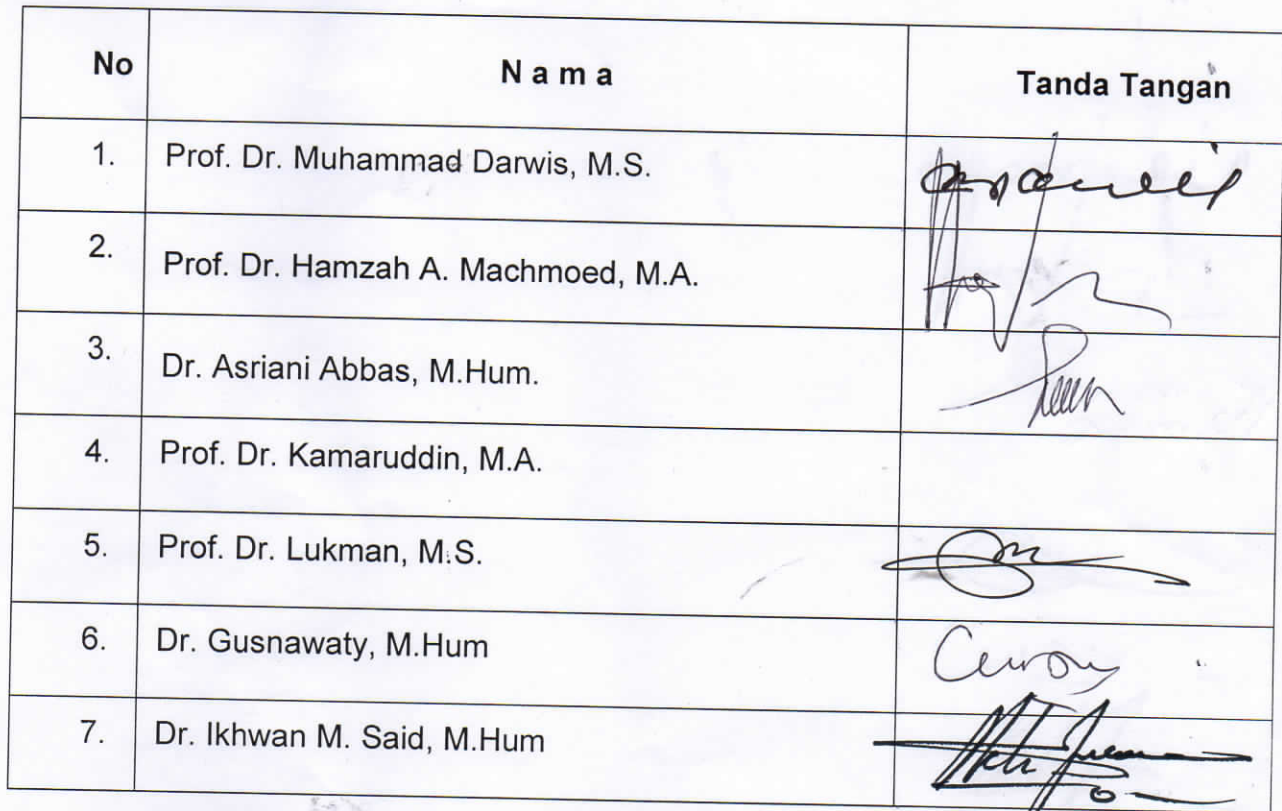 No N a m a Tanda Tangan
1. Prof. Dr. Muhammad Darwis, M.S.
2. Prof. Dr. Hamzah A. Machmoed, M.A.
3. Dr. Asriani Abbas, M.Hum.
4. Prof. Dr. Kamaruddin, M.A.
5. Prof. Dr. Lukman, M.S.
6. Dr. Gusnawaty, M.Hum
7. Dr. Ikhwan M. Said, M.Hum